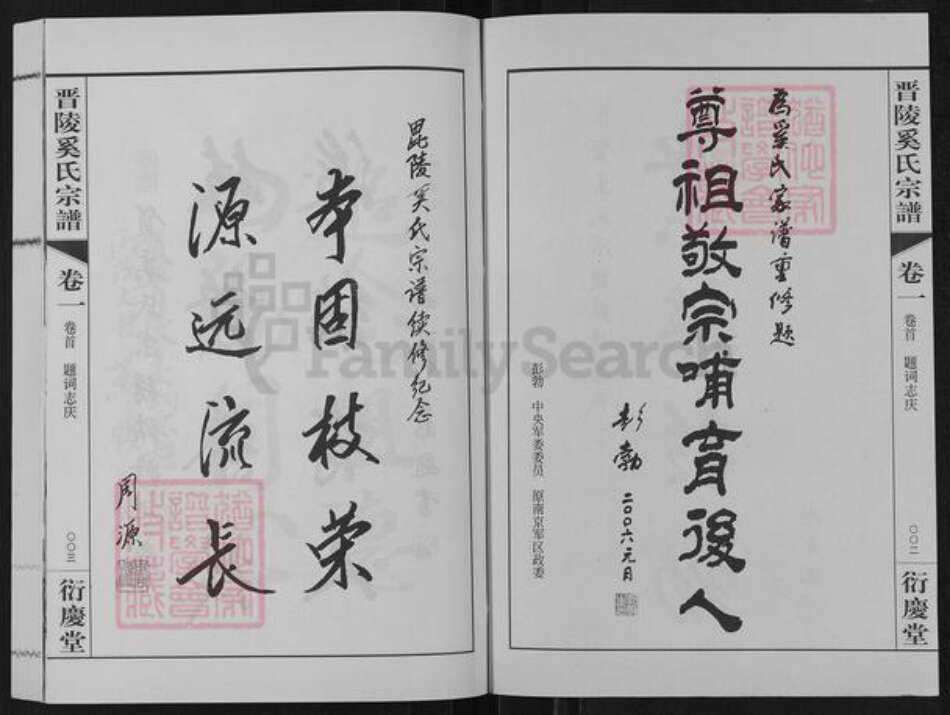 晋陵奚氏宗譜
卷一
卷首 题词志庆
〇〇二
衍慶堂
為奚氏家谱重修题
尊祖敬宗哺育後人
彭勃 二〇〇六元月
彭勃 中央军委委员 原南京军区政委
毘陵奚氏宗谱续修纪念
本固枝荣
源远流长
周源
晋陵奚氏宗譜
卷一
卷首 题词志庆
〇〇三
衍慶堂
FamilySearch